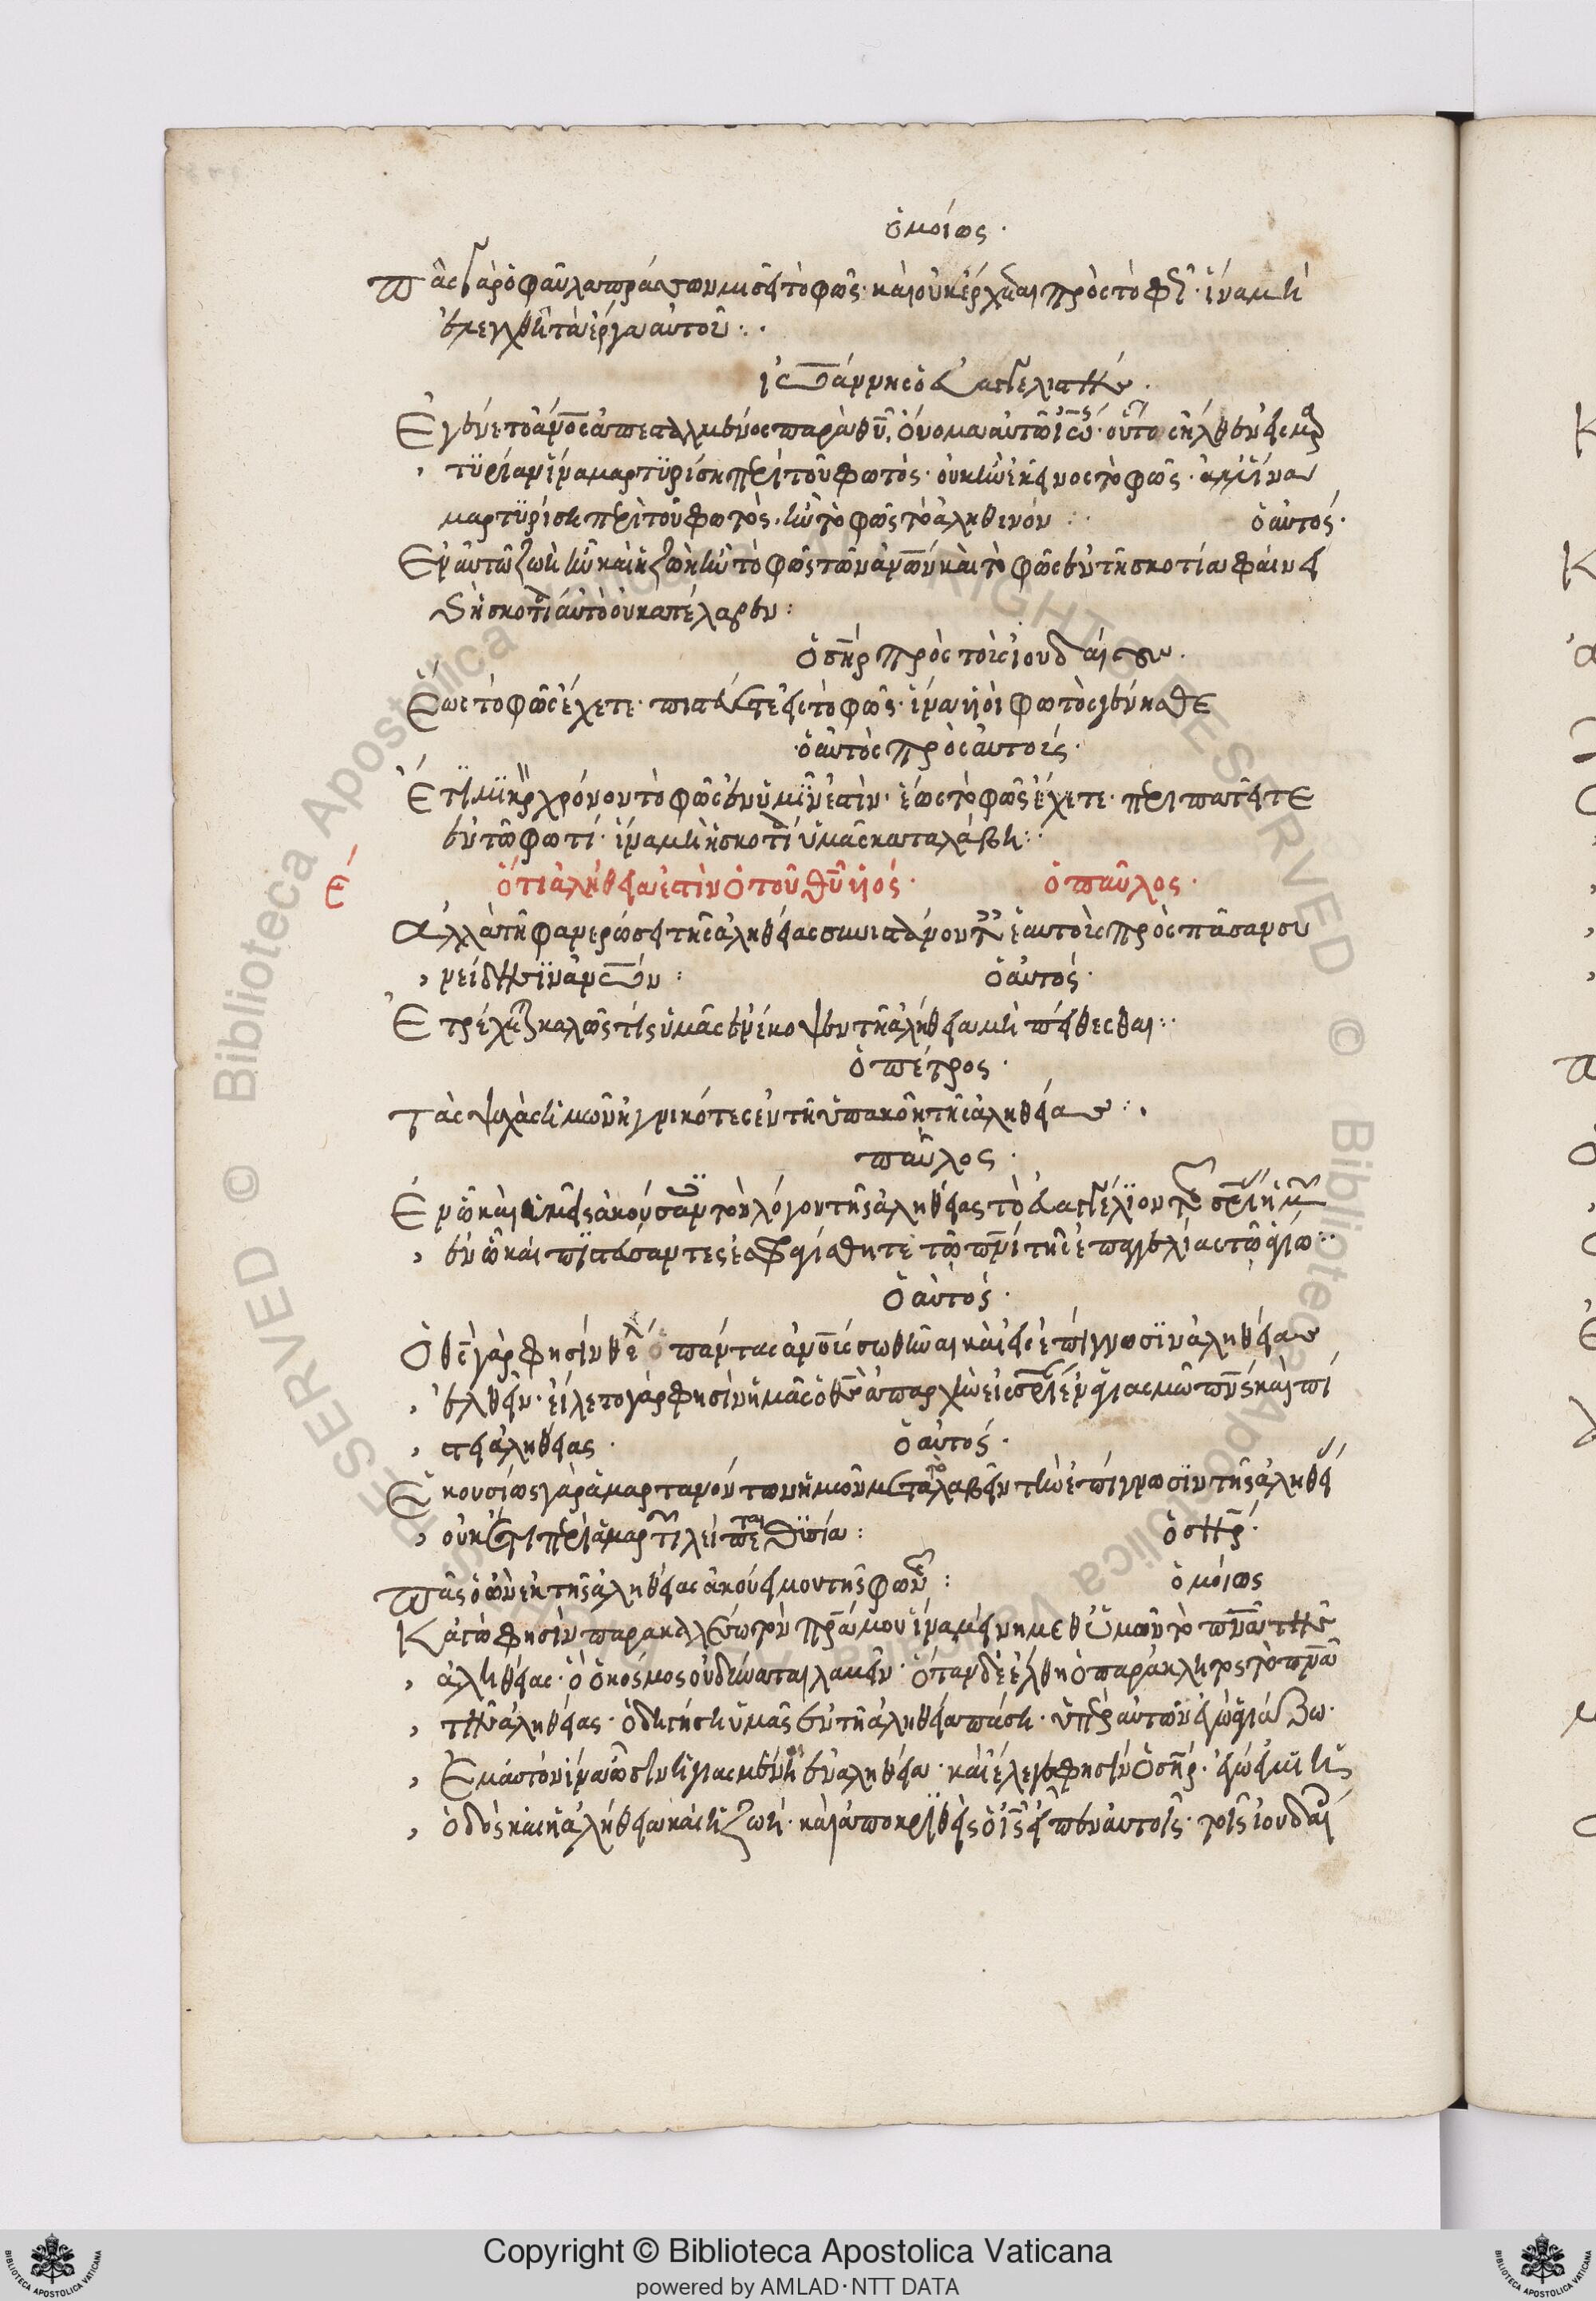 ὁμοίως·
πᾶς γὰρ ὁ φαῦλα πράσσων μισεῖ τὸ φῶς· καὶ οὐκ ἔρχεται πρὸς τὸ φῶς· ἵνα μὴ
ἐλεγχθῆ τὰ ἔργα αὐτοῦ:·
ἰωάννης ὁ εὐαγγελιστής·
Ἐγένετο ἄνος ἀπεσταλμένος παρὰ θυ, ὄνομα αὐτῶ ἰω· οὗτος ἦλθεν εἰς μαρ
τϋρίαν ἵνα μαρτϋρίση περὶ τοῦ φωτὸς· οὐκ ἦν ἐκεῖνος τὸ φῶς· ἀλλ' ἵνα
μαρτϋρίση περὶ τοῦ φωτὸς· ἦν τὸ φῶς τὸ ἀληθινόν: ὁ αὐτός·
Ἐν αὐτῶ ζωὴ ἦν καὶ ἡ ζωὴ ἦν τὸ φῶς τῶν ἀνων καὶ τὸ φῶς ἐν τῆ σκοτία φαίνει
καὶ ἡ σκοτία αὐτὸ οὐ κατέλαβεν:
ὁ σηρ πρὸς τοὺς ἰουδαίους·
Ἕως τὸ φῶς ἔχετε· πιστεύετε εἰς τὸ φῶς· ἵνα ϋἱοὶ φωτὸς γένησθε
ὁ αὐτὸς πρὸς αὐτοὺς·
Ἔτϊ μϊκρὸν χρόνον τὸ φῶς ἐν ὑμῖν ἐστὶν· ἕως τὸ φῶς ἔχετε· περιπατεῖτε
ἐν τῶ φωτί· ἵνα μὴ ἡ σκοτία ὑμᾶς καταλάβη:·
Ε ὅτι ἀλήθεια ἐστὶν ὁ τοῦ θυ ϋἱός· ὁ παῦλος·
Αλλὰ τῆ φανερώσει τῆς ἀληθείας συνιστάνοντες ἑαυτοὺς πρὸς πᾶσαν συ
νείδησϊν ἀνων: ὁ αὐτός·
Ἐτρέχετε καλῶς τίς ὑμᾶς ἐνέκοψεν τῆ ἀληθεία μὴ πείθεσθαι:·
ὁ πέτρος·
Τὰς ψυχὰς ἡμῶν ἡγνικότες ἐν τῆ ὑπακοῆ τῆς ἀληθείας:·
παῦλος·
Ἐν ὧ καὶ ὑμεῖς ἀκούσαντες τὸν λόγον τῆς ἀληθείας τὸ εὐαγγέλϊον τῆς σριας ἡμῶν
ἐν ὧ καὶ πϊστεύσαντες ἐσφραγίσθητε τῶ πνι τῆς ἐπαγγελίας τῶ ἁγίω:·
ὁ αὐτός·
Ὁ θς γὰρ φησὶν θέλει πάντας ἀνους σωθῆναι καὶ εἰς ἐπίγνωσϊν ἀληθείας
ἐλθεῖν· εἵλετο γὰρ φησὶν ἡμᾶς ὁ θς ἀπαρχὴν εἰς σριαν ἐν ἁγιασμῶ πνς καὶ πί
στει ἀληθείας· ὁ αὐτός·
Ἑκουσίως γὰρ ἁμαρτανόντων ἡμῶν μετὰ τὸ λαβεῖν τὴν ἐπίγνωσϊν τῆς ἀληθεί
οὐκ ἔτι περὶ ἁμαρτιῶν λείπεται θϋσία: ὁ σηρ·
Πᾶς ὁ ὢν ἐκ τῆς ἀληθείας ἀκούει μου τῆς φωνῆς: ὁμοίως
Κἀγὼ φησὶν παρακαλέσω τὸν πρα μου ἵνα μείνη μεθ' ὑμῶν τὸ πνα τῆς
ἀληθείας· ὃ ὁ κόσμος οὐ δύναται λαβεῖν· ὅταν δὲ ἔλθη ὁ παράκλητος τὸ πνα
τῆς ἀληθείας· ὁδηγήση ὑμᾶς ἐν τῆ ἀληθεία πάση· ὑπὲρ αὐτῶν ἐγὼ ἁγιάζω·
Ἐμαυτὸν ἵνα ὦσϊν ἡγιασμένοι ἐν ἀληθεία· καὶ ἔλεγε φησὶν ὁ σηρ· ἐγώ εἰμϊ ἡ
ὁδὸς καὶ ἡ ἀλήθεια καὶ ἡ ζωή· καὶ ἀποκρϊθεὶς ὁ ις εἶπεν αὐτοῖς· τοῖς ἰουδαί
Copyright © Biblioteca Apostolica Vaticana
powered by AMLAD·NTT DATA